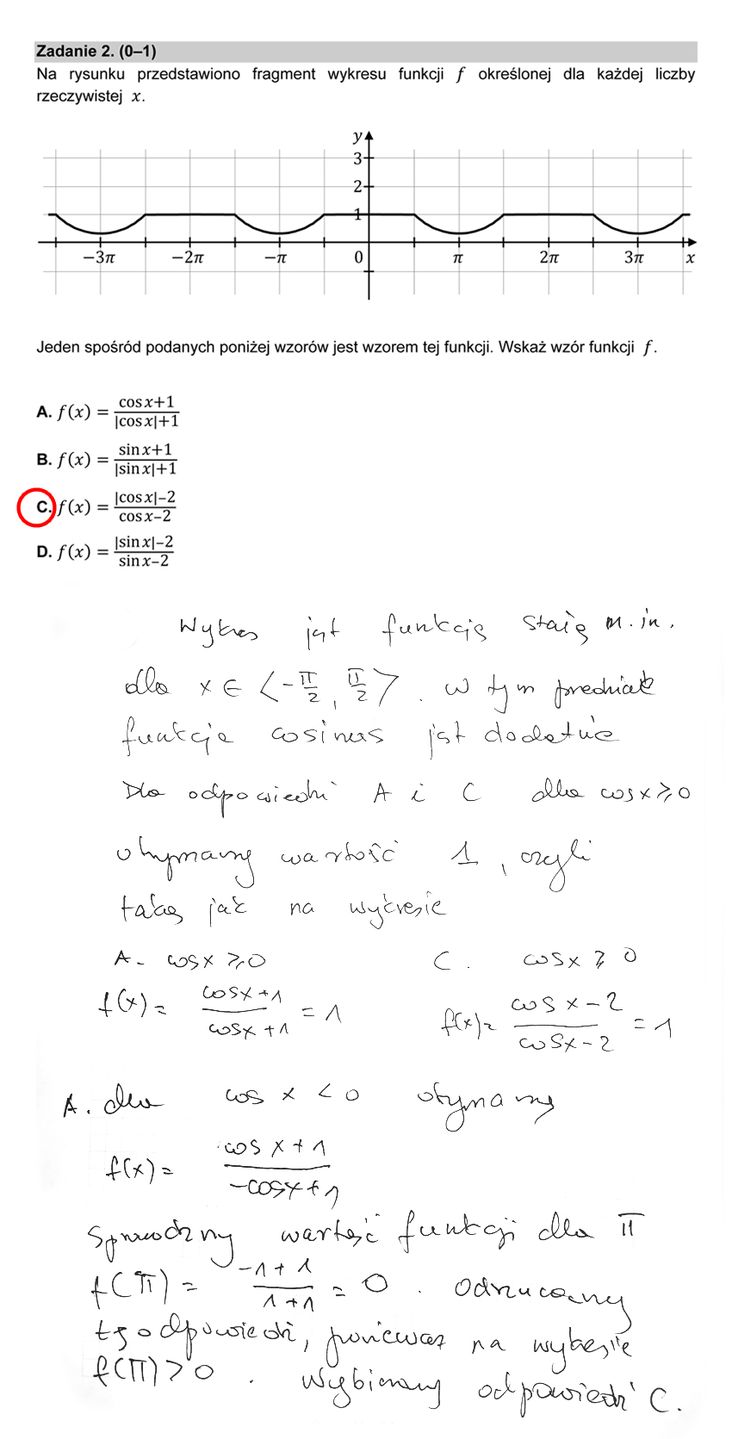 Zadanie 2. (0–1)
Na rysunku przedstawiono fragment wykresu funkcji f określonej dla każdej liczby
rzeczywistej x.
y
3
2
1
−3π −2π −π 0 π 2π 3π x
Jeden spośród podanych poniżej wzorów jest wzorem tej funkcji. Wskaż wzór funkcji f.
A. f(x) = (cos x+1)/(|cos x|+1)
B. f(x) = (sin x+1)/(|sin x|+1)
C. f(x) = (|cos x|−2)/(cos x−2)
D. f(x) = (|sin x|−2)/(sin x−2)
Wykres jest funkcją stałą m.in.
dla x ∈ <-π/2, π/2>. w tym przedziale
funkcja cosinus jest dodatnia
Dla odpowiedzi A i C dla cosx ⩾ 0
otrzymamy wartość 1, czyli
taką jak na wykresie
A. cosx ⩾ 0 C. cosx ⩾ 0
f(x) = (cosx+1)/(cosx+1) = 1 f(x) = (cosx-2)/(cosx-2) = 1
A. dla cos x < 0 otrzymamy
f(x) = (cos x+1)/(-cosx+1)
Sprawdzmy wartość funkcji dla π
f(π) = (-1+1)/(1+1) = 0. odrzucamy
tę odpowiedź, ponieważ na wykresie
f(π) > 0. Wybieramy odpowiedź C.